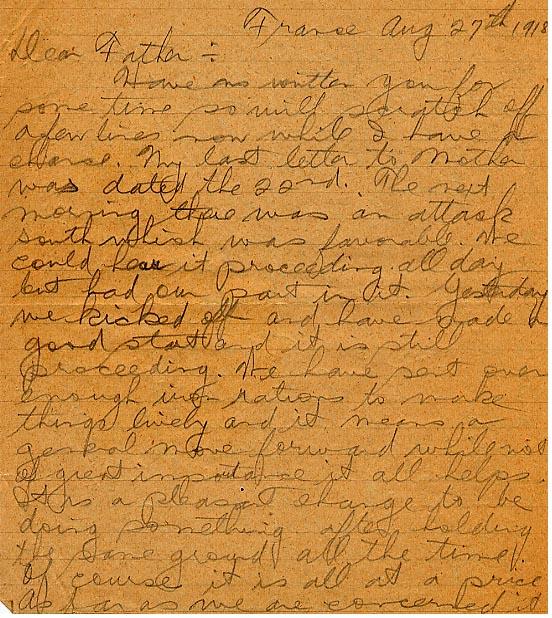 France Aug 27th 1918
Dear Father :-
Have no written you for
some time so will scratch off
a few lines now while I have a
chance. My last letter to Mother
was dated the 22nd. The next
morning there was an attack
south which was favorable. We
could hear it proceeding all day
but had our part in it. Yesterday
we kicked off and have made a
good start and it is still
proceeding. We have sent over
enough iron rations to make
things lively and it means a
general move forward while not
of great importance it all helps.
It is a pleasant change to be
doing something after holding
the same ground all the time.
Of course it is all at a price
As far as we are concerned it